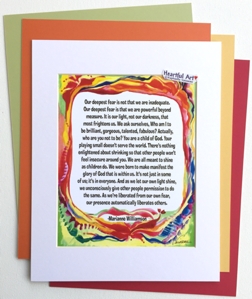 Heartful Art
Our deepest fear is not that we are inadequate.
Our deepest fear is that we are powerful beyond
measure. It is our light, not our darkness, that
most frightens us. We ask ourselves, Who am I to
be brilliant, gorgeous, talented, fabulous? Actually,
who are you not to be? You are a child of God. Your
playing small doesn't serve the world. There's nothing
enlightened about shrinking so that other people won't
feel insecure around you. We are all meant to shine
as children do. We were born to make manifest the
glory of God that is within us. It's not just in some
of us; it's in everyone. And as we let our own light shine,
we unconsciously give other people permission to do
the same. As we're liberated from our own fear,
our presence automatically liberates others.
-Marianne Williamson